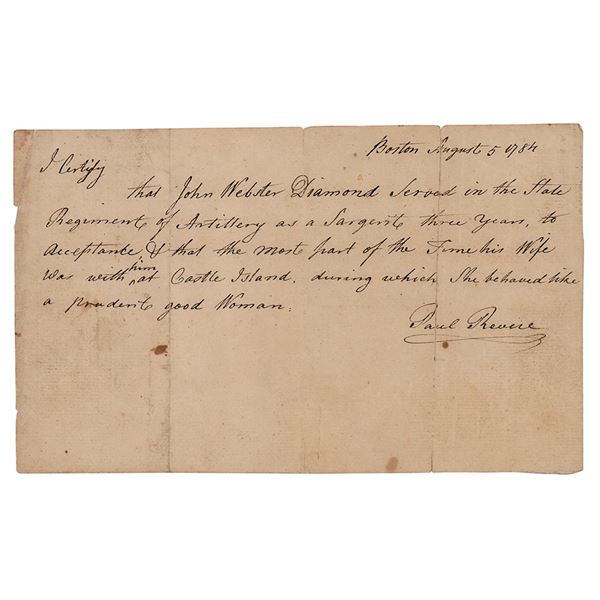 Boston August 5 1784
I Certify
that John Webster Diamond Served in the State
Regiment of Artillery as a Sargent three years, to
acceptance, & that the most part of the Time his Wife
was with him at Castle Island, during which She behaved like
a prudent good Woman.
Paul Revere